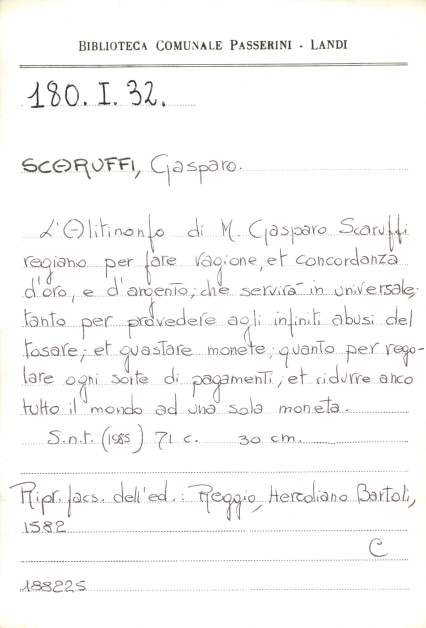 BIBLIOTECA COMUNALE PASSERINI - LANDI
180. I. 32.
SCORUFFI, Gasparo.
L'Olitinonfo di M. Gasparo Scaruffi
regiano per fare ragione, et concordanza
d'oro, e d'argento; che servirà in universale;
tanto per provedere agli infiniti abusi del
tosare; et guastare monete; quanto per rego-
lare ogni sorte di pagamenti; et ridurre anco
tutto il mondo ad una sola moneta.
S.n.t. (1985) 71 c. 30 cm.
Ripr. facs. dell'ed.: Reggio, Hercoliano Bartoli,
1582
C
188225